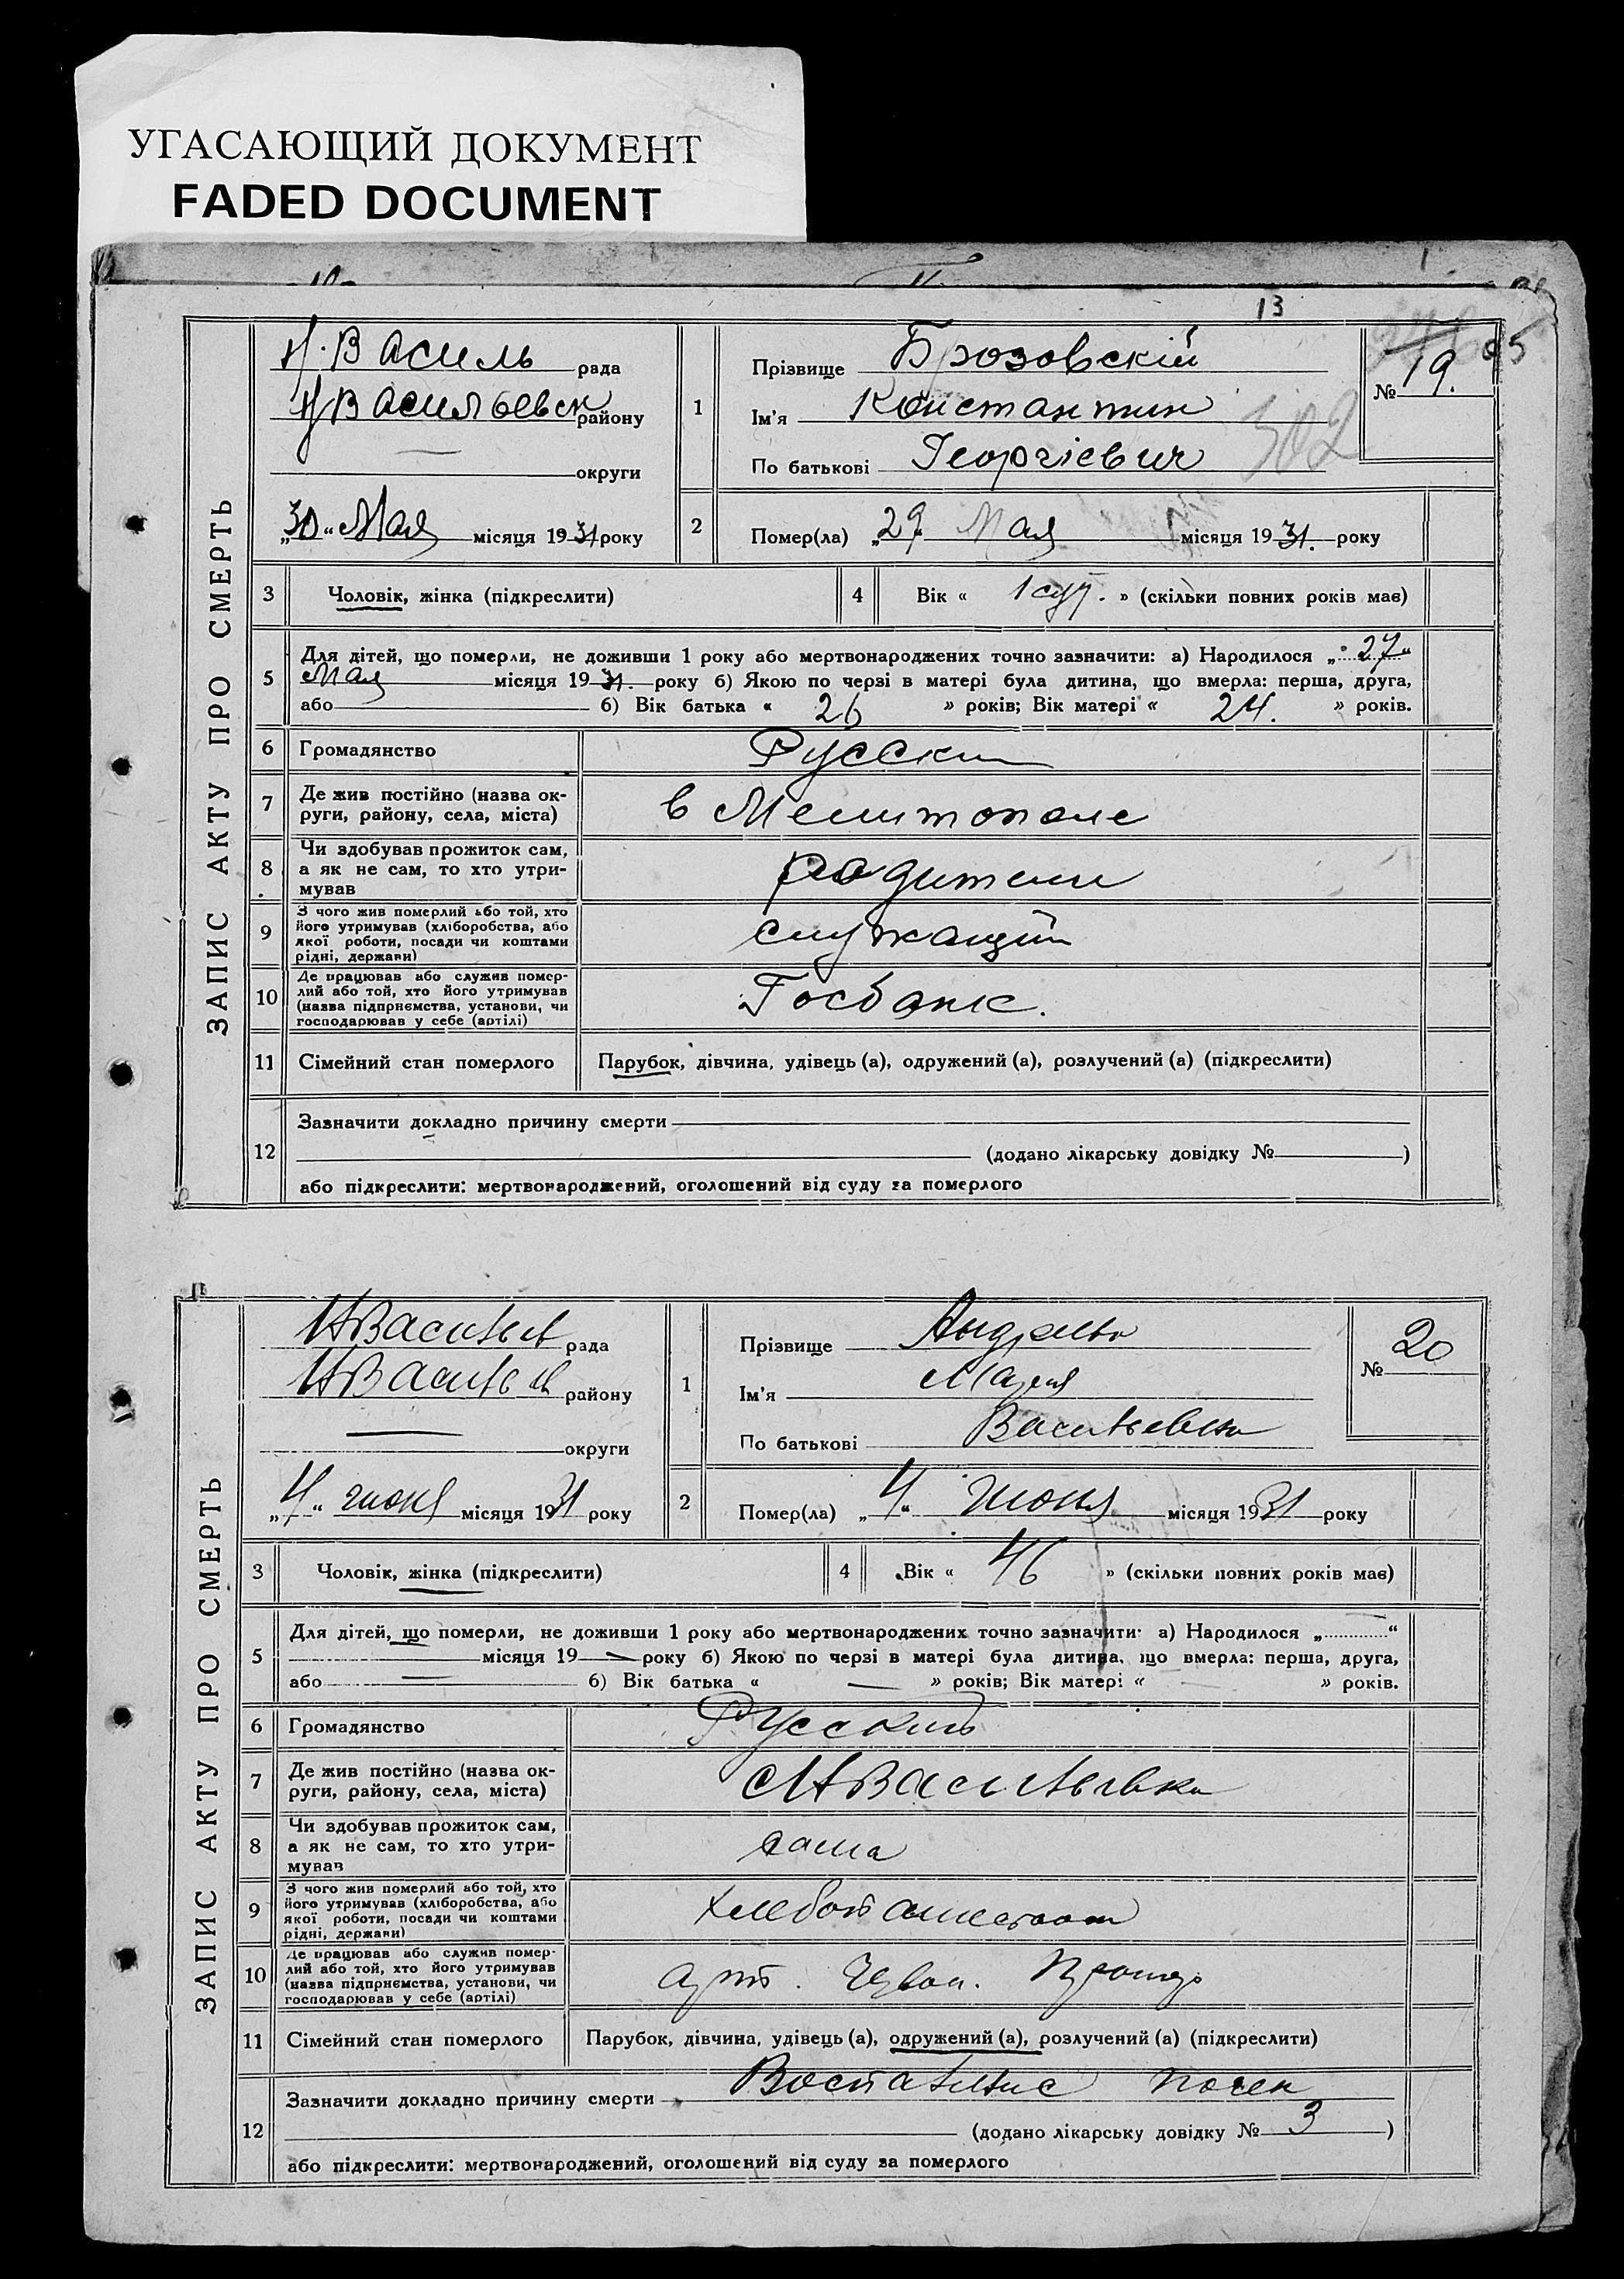 УГАСАЮЩИЙ ДОКУМЕНТ
FADED DOCUMENT
13
ЗАПИС АКТУ ПРО СМЕРТЬ
Н. Василь рада
Н Васильевск району
округи
„30“ Мая місяця 1931 року
1
Прізвище Брозовскій
Ім'я Константин
По батькові Георгіевич
№ 19.
302
2
Помер(ла) „29“ Мая місяця 1931. року
3 Чоловік, жінка (підкреслити)
4 Вік « 1 сут. » (скільки повних років має)
5 Для дітей, що померли, не доживши 1 року або мертвонароджених точно зазначити: а) Народилося „27“
Мая місяця 1931. року б) Якою по черзі в матері була дитина, що вмерла: перша, друга,
або б) Вік батька « 26 » років; Вік матері « 24. » років.
6 Громадянство Русски
7 Де жив постійно (назва ок-
руги, району, села, міста) в Мелитополе
8 Чи здобував прожиток сам,
а як не сам, то хто утри-
мував родители
9 З чого жив померлий або той, хто
його утримував (хліборобства, або
якої роботи, посади чи коштами
рідні, держави) служащий
10 Де працював або служив помер-
лий або той, хто його утримував
(назва підприємства, установи, чи
господарював у себе (артілі) Госбанк.
11 Сімейний стан померлого Парубок, дівчина, удівець (а), одружений (а), розлучений (а) (підкреслити)
12 Зазначити докладно причину смерти
(додано лікарську довідку № )
або підкреслити: мертвонароджений, оголошений від суду за померлого
ЗАПИС АКТУ ПРО СМЕРТЬ
НВасильев рада
НВасильев району
округи
„4“ июня місяця 1931 року
1
Прізвище
Ім'я Мария
По батькові Васильевна
№ 20
2
Помер(ла) „4“ июня місяця 1931 року
3 Чоловік, жінка (підкреслити)
4 Вік « 46 » (скільки повних років має)
5 Для дітей, що померли, не доживши 1 року або мертвонароджених точно зазначити: а) Народилося „ “
місяця 19 року б) Якою по черзі в матері була дитина, що вмерла: перша, друга,
або б) Вік батька « — » років; Вік матері « — » років.
6 Громадянство Русский
7 Де жив постійно (назва ок-
руги, району, села, міста) НВасильевка
8 Чи здобував прожиток сам,
а як не сам, то хто утри-
мував сама
9 З чого жив померлий або той, хто
його утримував (хліборобства, або
якої роботи, посади чи коштами
рідні, держави)
10 Де працював або служив помер-
лий або той, хто його утримував
(назва підприємства, установи, чи
господарював у себе (артілі) арт. Червон.
11 Сімейний стан померлого Парубок, дівчина, удівець (а), одружений (а), розлучений (а) (підкреслити)
12 Зазначити докладно причину смерти Воспаление почек
(додано лікарську довідку № 3 )
або підкреслити: мертвонароджений, оголошений від суду за померлого